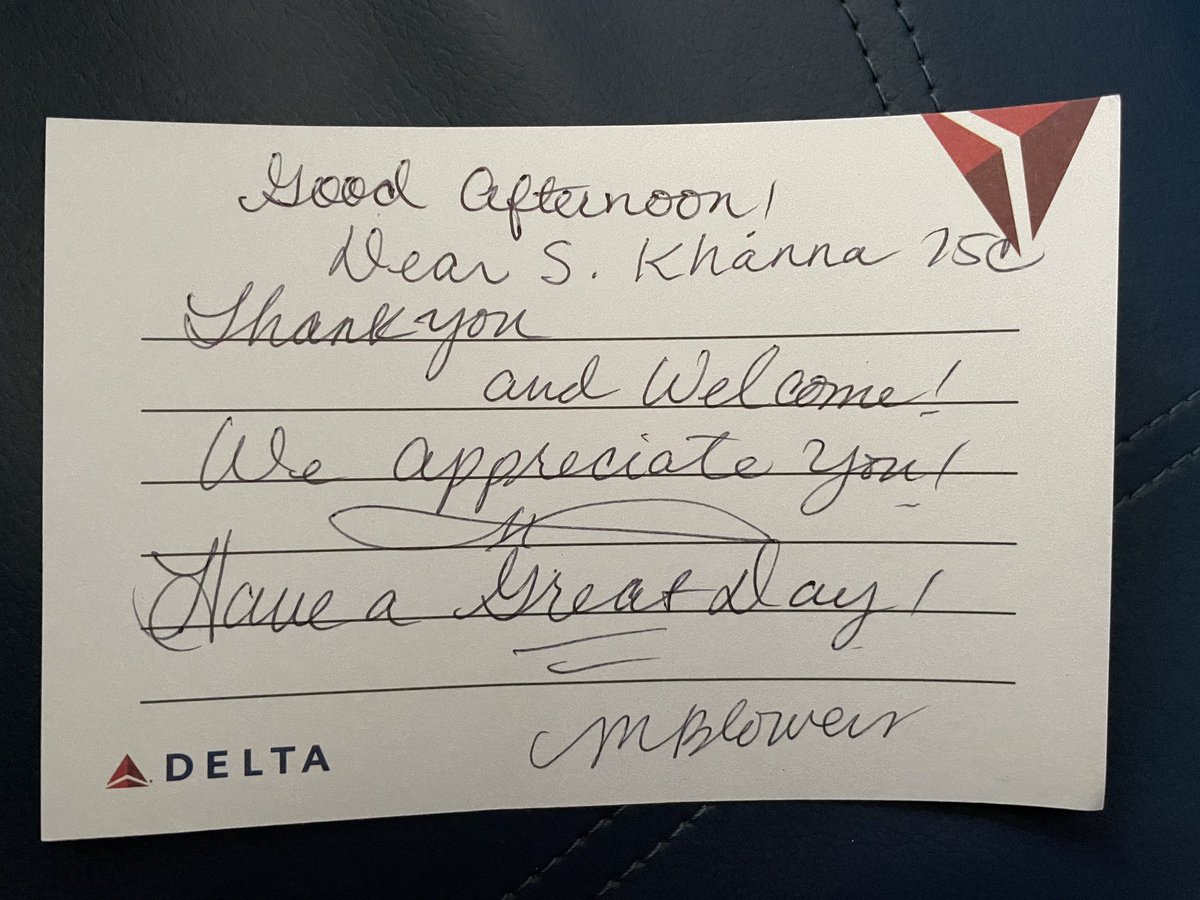 Good Afternoon!
Dear S. Khanna 25C
Thank you
and Welcome!
We appreciate you!
Have a Great Day!
MBlowers
DELTA